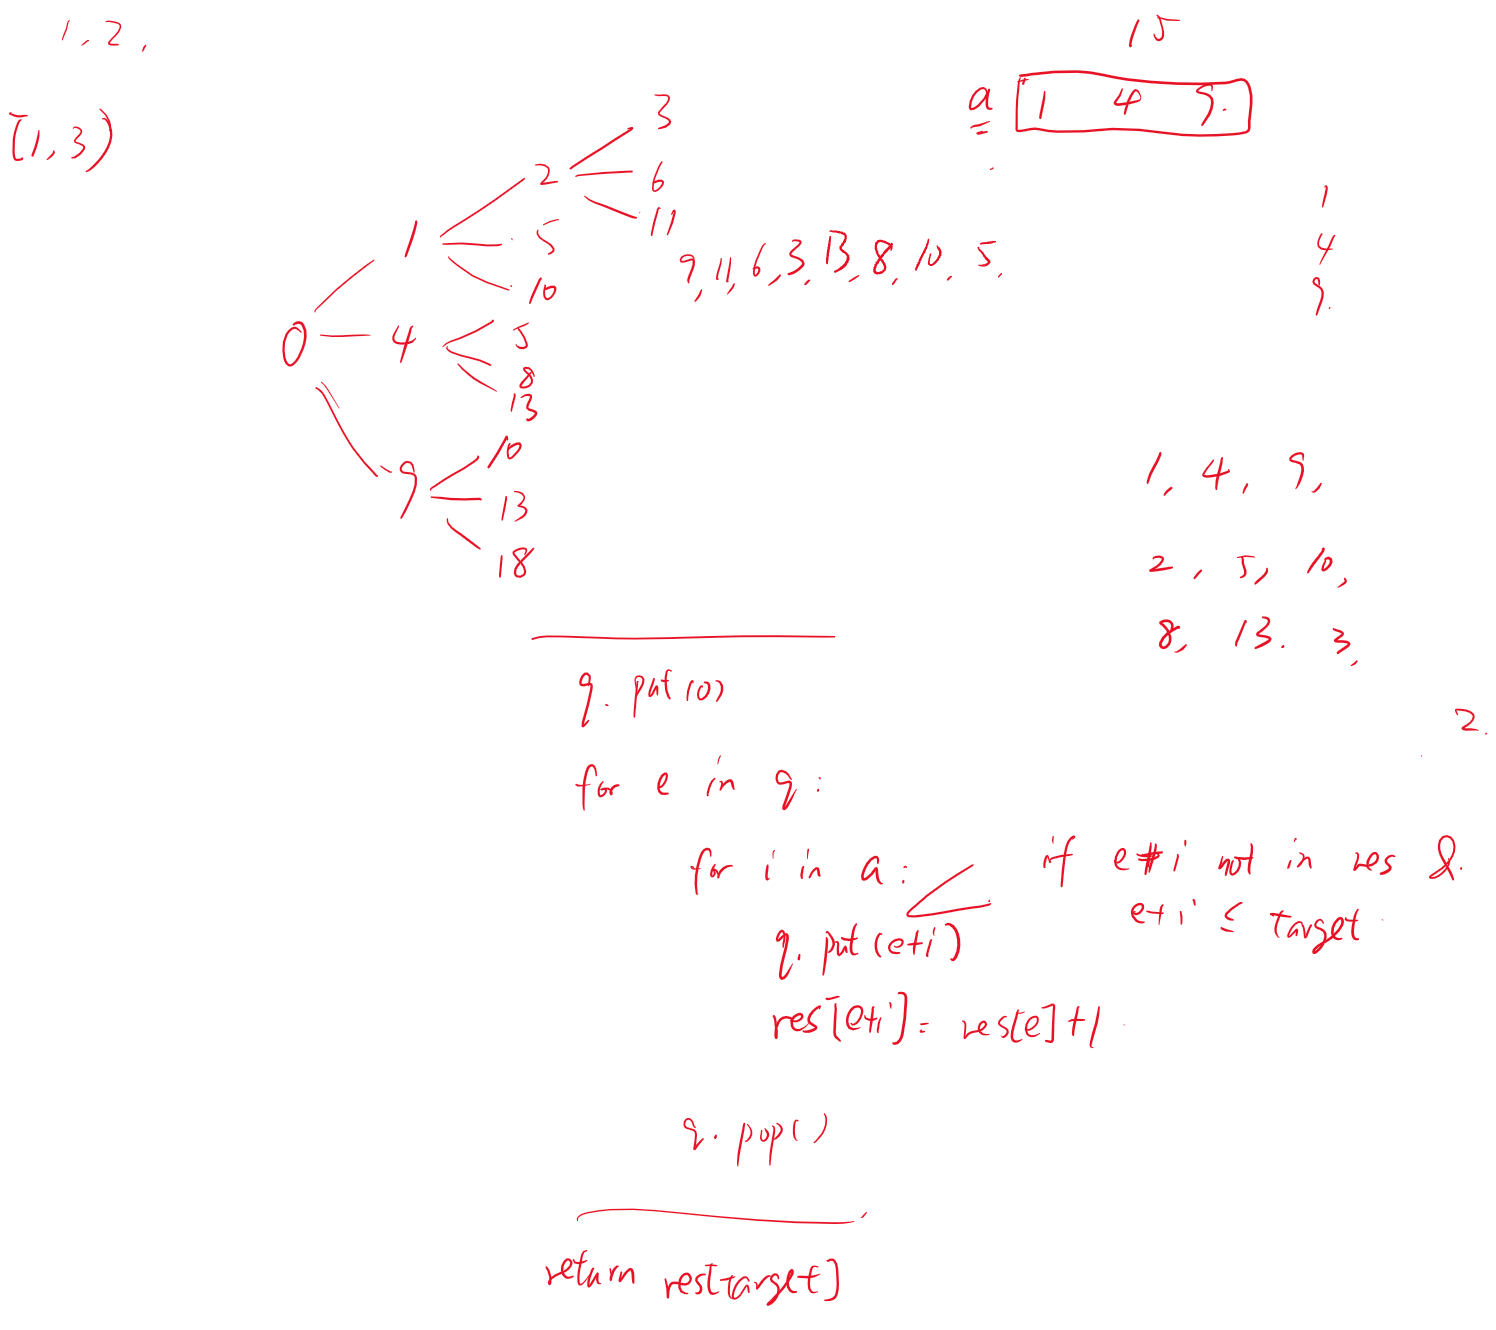 1, 2,
[1, 3)
15
a 1 4 9.
3
2
6
1
5
11
10
9, 11, 6, 3, 13, 8, 10, 5,
1
4
9.
0
4
5
8
13
9
10
13
18
1, 4, 9,
2, 5, 10,
8, 13. 3,
2.
q. put(0)
for e in q:
for i in a:
if e+i not in res &.
e+i ≤ target
q. put(e+i)
res[e+i] = res[e]+1
q. pop()
return res[target]